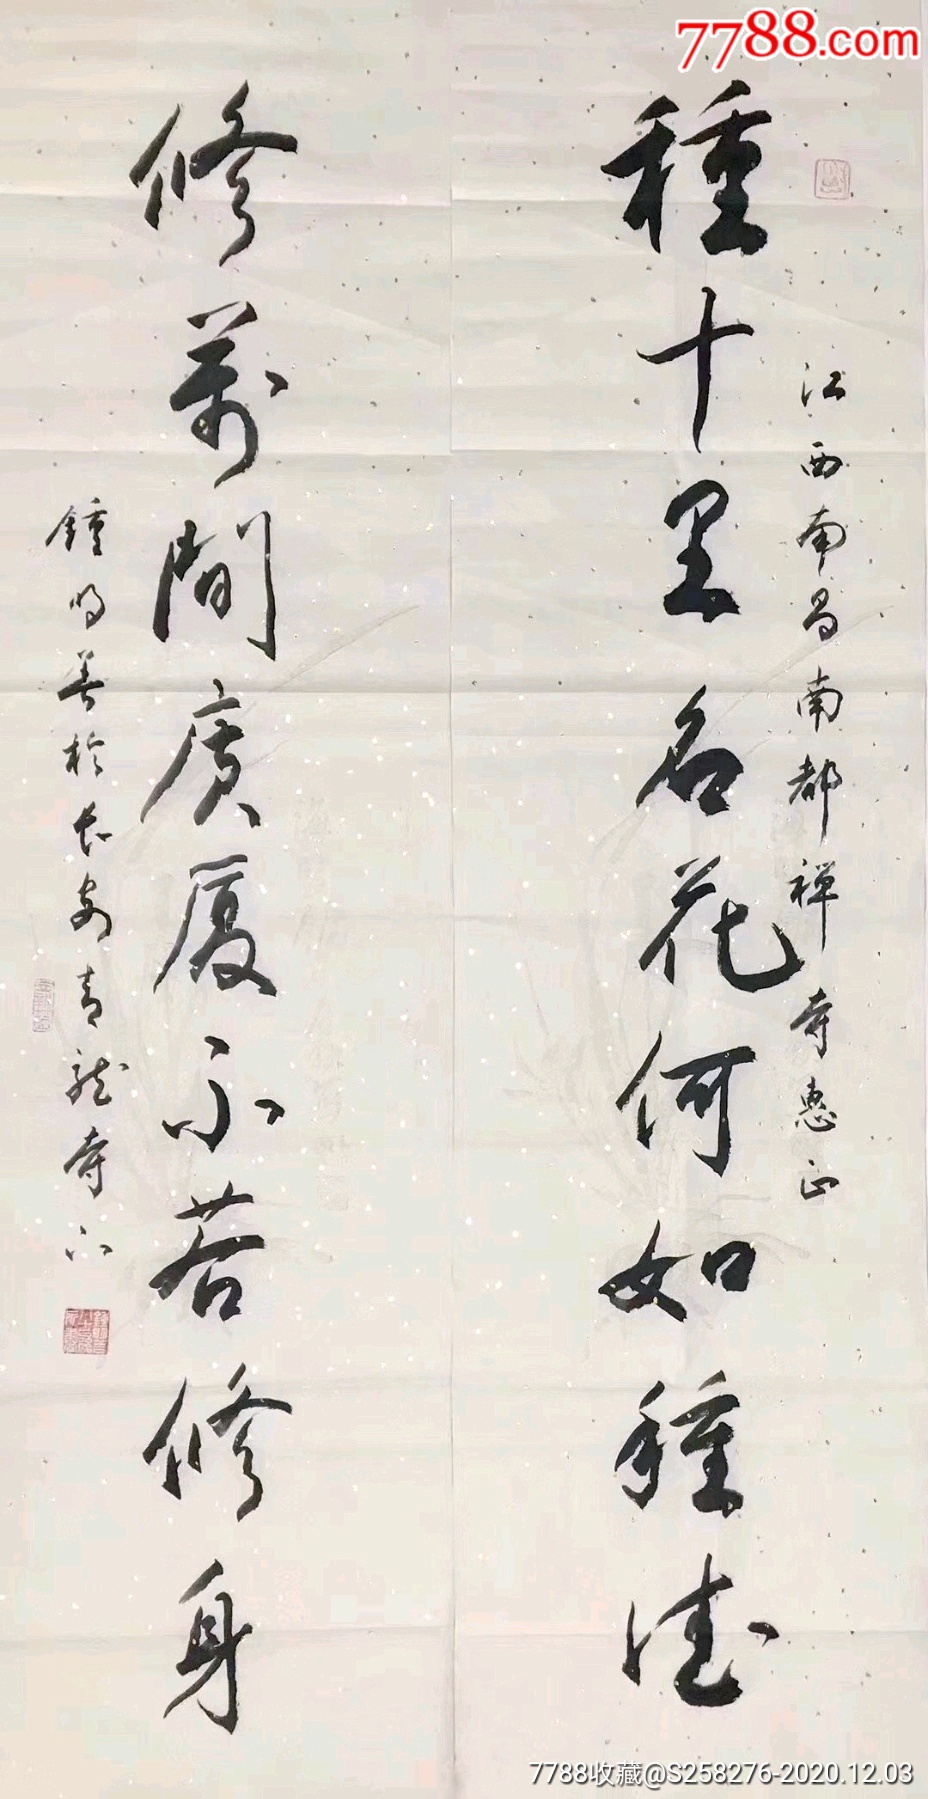 7788.com
江西南昌南都禅寺惠正
種十里名花何如種德
修萬間廣厦不若修身
鍾明善於長安青龍寺下
7788收藏@S258276-2020.12.03